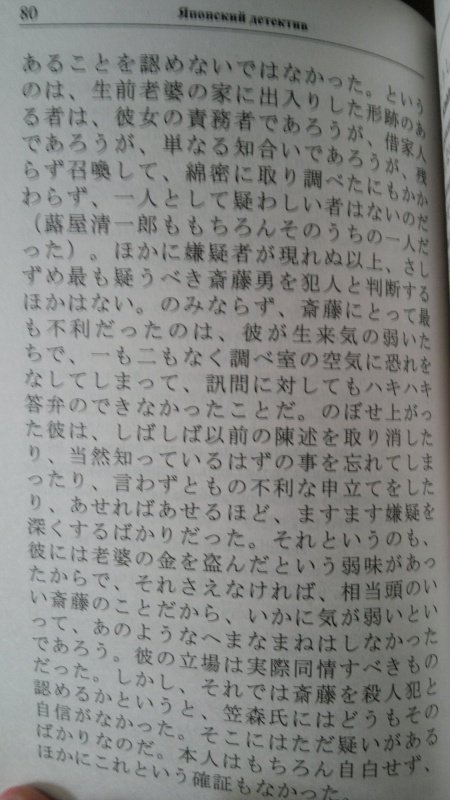 80
Японский детектив
あることを認めないではなかった。という
のは、生前老婆の家に出入りした形跡のあ
る者は、彼女の責務者であろうが、借家人
であろうが、単なる知合いであろうが、残
らず召喚して、綿密に取り調べたにもかか
わらず、一人として疑わしい者はないのだ
(蕗屋清一郎ももちろんそのうちの一人だ
った)。ほかに嫌疑者が現れぬ以上、さし
ずめ最も疑うべき斎藤勇を犯人と判断する
ほかはない。のみならず、斎藤にとって最
も不利だったのは、彼が生来気の弱いた
ちで、一も二もなく調べ室の空気に恐れを
なしてしまって、訊問に対してもハキハキ
答弁のできなかったことだ。のぼせ上がっ
た彼は、しばしば以前の陳述を取り消した
り、当然知っているはずの事を忘れてしま
ったり、言わずともの不利な申立てをした
り、あせればあせるほど、ますます嫌疑を
深くするばかりだった。それというのも、
彼には老婆の金を盗んだという弱味があっ
たからで、それさえなければ、相当頭のい
い斎藤のことだから、いかに気が弱いとい
って、あのようなへまなまねはしなかった
であろう。彼の立場は実際同情すべきもの
だった。しかし、それでは斎藤を殺人犯と
認めるかというと、笠森氏にはどうもその
自信がなかった。そこにはただ疑いがある
ばかりなのだ。本人はもちろん自白せず、
ほかにこれという確証もなかった。